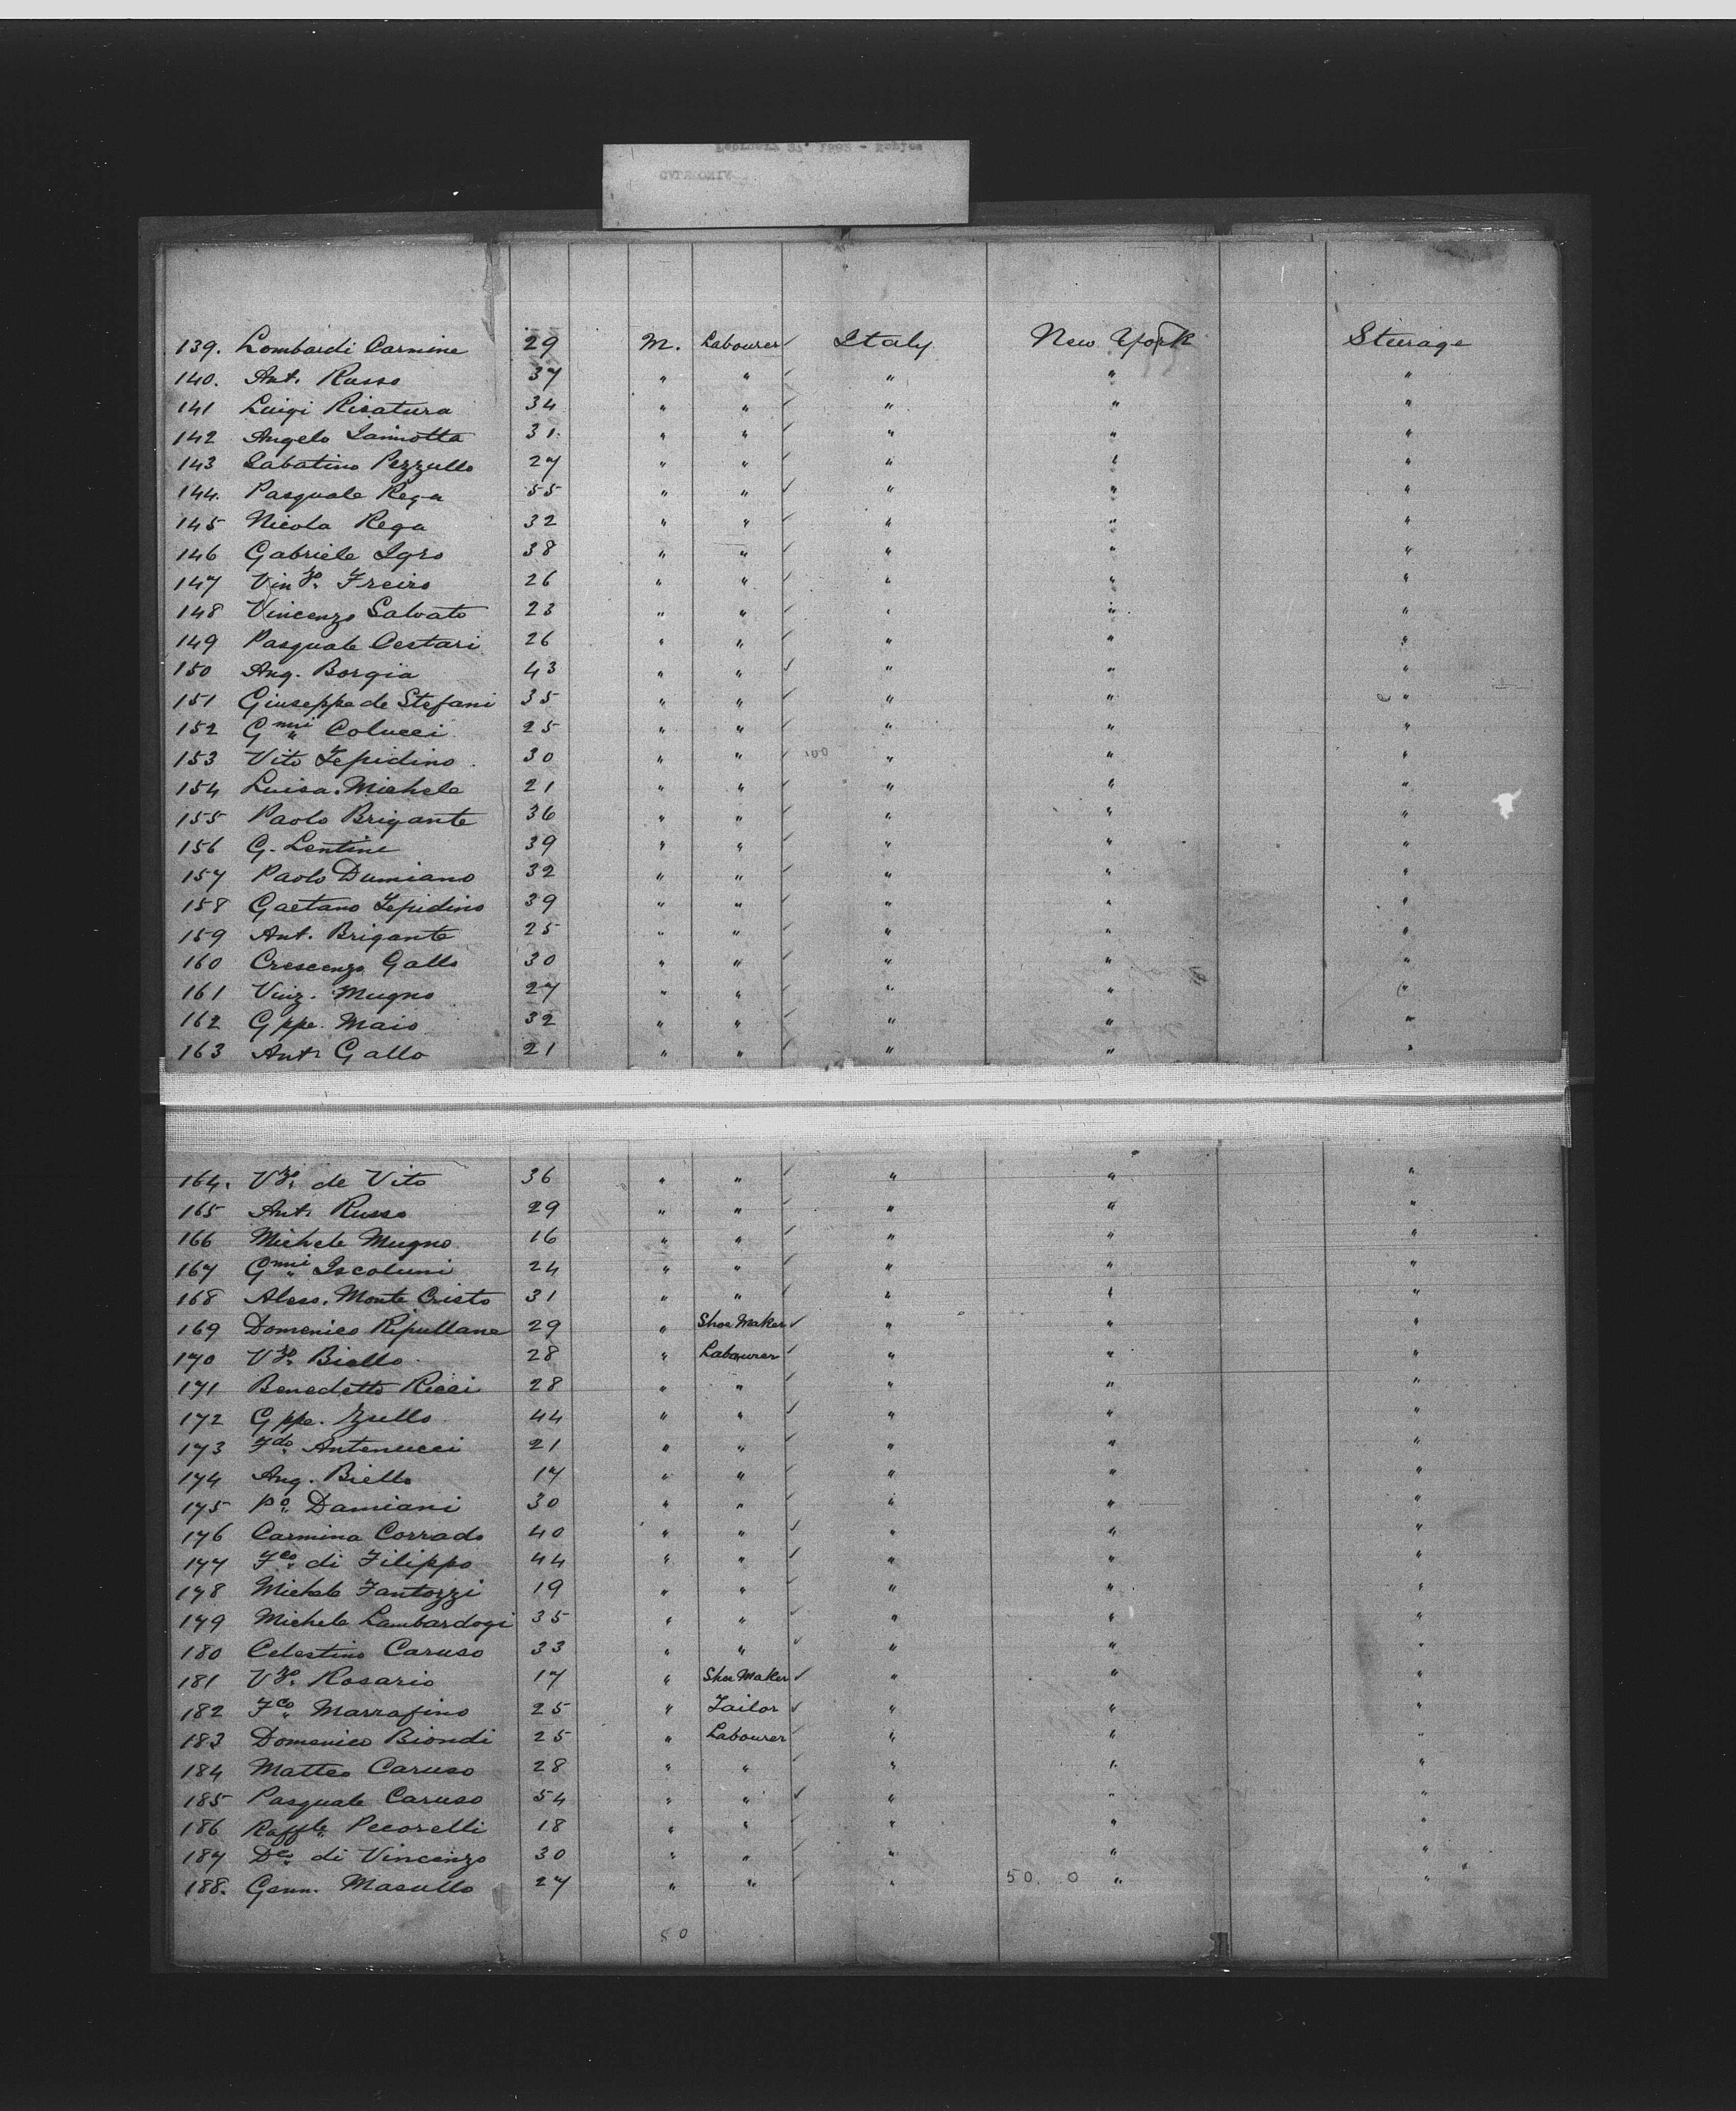 139. Lombardi Carmine 29 M. Labourer ✓ Italy New York Steerage
140. Ant. Russo 37 " " ✓ " " "
141 Luigi Risatura 34 " " ✓ " " "
142 Angelo Iannotta 31. " " ✓ " " "
143 Sabatino Pezzullo 27 " " ✓ " " "
144. Pasquale Rega 55 " " ✓ " " "
145 Nicola Rega 32 " " ✓ " " "
146 Gabriele Igro 38 " " ✓ " " "
147 Vinzo. Freiro 26 " " ✓ " " "
148 Vincenzo Salvato 23 " " ✓ " " "
149 Pasquale Cestari 26 " " ✓ " " "
150 Ang. Borgia 43 " " ✓ " " "
151 Giuseppe de Stefani 35 " " ✓ " " "
152 Gnni Colucci 25 " " ✓ " " "
153 Vito Lepidino 30 " " ✓ 100 " " "
154 Luisa. Michele 21 " " ✓ " " "
155 Paolo Brigante 36 " " ✓ " " "
156 G. Lentini 39 " " ✓ " " "
157 Paolo Dumiano 32 " " ✓ " " "
158 Gaetano Lepidino 39 " " ✓ " " "
159 Ant. Brigante 25 " " ✓ " " "
160 Crescenzo Gallo 30 " " ✓ " " "
161 Vinz. Mugno 27 " " ✓ " " "
162 Gppe. Maio 32 " " ✓ " " "
163 Ant. Gallo 21 " " ✓ " " "
164. Vzo. de Vito 36 " " ✓ " " "
165 Ant. Russo 29 " " ✓ " " "
166 Michele Mugno 16 " " ✓ " " "
167 Gnni Iscoluni 24 " " ✓ " " "
168 Aless. Monte Cristo 31 " " ✓ " " "
169 Domenico Ripullane 29 " Shoe Maker ✓ " " "
170 Vzo. Biello 28 " Labourer ✓ " " "
171 Benedetto Ricci 28 " " ✓ " " "
172 Gppe. Zullo 44 " " ✓ " " "
173 Fdo. Antenucci 21 " " ✓ " " "
174 Ang. Biello 17 " " ✓ " " "
175 Po. Damiani 30 " " ✓ " " "
176 Carmina Corrado 40 " " ✓ " " "
177 Fco. di Filippo 44 " " ✓ " " "
178 Michele Fantozzi 19 " " ✓ " " "
179 Michele Lambardogi 35 " " ✓ " " "
180 Celestino Caruso 33 " " ✓ " " "
181 Vzo. Rosario 17 " Shoe Maker ✓ " " "
182 Fco. Marrafino 25 " Tailor ✓ " " "
183 Domenico Biondi 25 " Labourer ✓ " " "
184 Matteo Caruso 28 " " ✓ " " "
185 Pasquale Caruso 54 " " ✓ " " "
186 Raffle. Pecorelli 18 " " ✓ " " "
187 Dco. di Vincenzo 30 " " ✓ " " "
188. Genn. Masullo 27 " " ✓ " 50. 0 " "
50